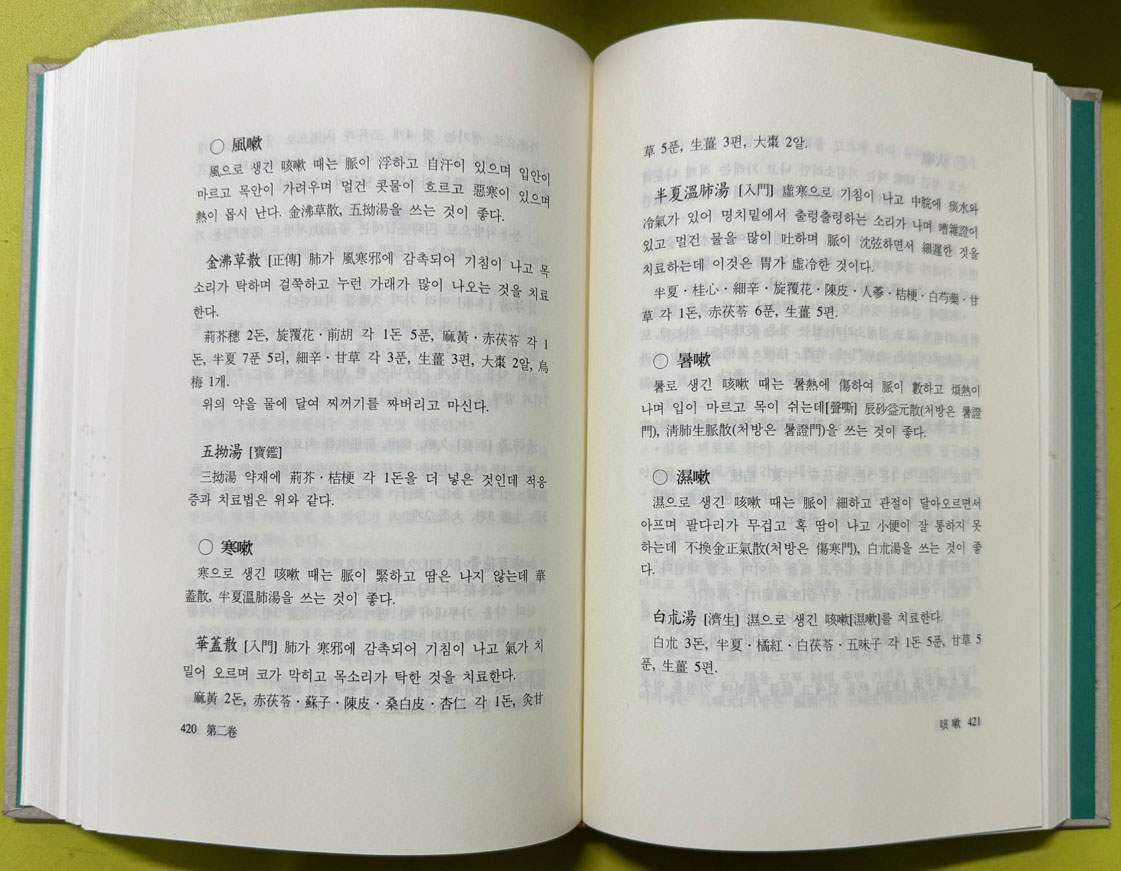 ○ 風嗽
風으로 생긴 咳嗽 때는 脈이 浮하고 自汗이 있으며 입안이
마르고 목안이 가려우며 멀건 콧물이 흐르고 惡寒이 있으며
熱이 몹시 난다. 金沸草散, 五拗湯을 쓰는 것이 좋다.
金沸草散 [正傳] 肺가 風寒邪에 감촉되어 기침이 나고 목
소리가 탁하며 걸쭉하고 누런 가래가 많이 나오는 것을 치료
한다.
荊芥穗 2돈, 旋覆花·前胡 각 1돈 5푼, 麻黃·赤茯苓 각 1
돈, 半夏 7푼 5리, 細辛·甘草 각 3푼, 生薑 3편, 大棗 2알, 烏
梅 1개.
위의 약을 물에 달여 찌꺼기를 짜버리고 마신다.
五拗湯 [寶鑑]
三拗湯 약재에 荊芥·桔梗 각 1돈을 더 넣은 것인데 적응
증과 치료법은 위와 같다.
○ 寒嗽
寒으로 생긴 咳嗽 때는 脈이 緊하고 땀은 나지 않는데 華
蓋散, 半夏溫肺湯을 쓰는 것이 좋다.
華蓋散 [入門] 肺가 寒邪에 감촉되어 기침이 나고 氣가 치
밀어 오르며 코가 막히고 목소리가 탁한 것을 치료한다.
麻黃 2돈, 赤茯苓·蘇子·陳皮·桑白皮·杏仁 각 1돈, 灸甘
420 第二卷
草 5푼, 生薑 3편, 大棗 2알.
半夏溫肺湯 [入門] 虛寒으로 기침이 나고 中脘에 痰水와
冷氣가 있어 명치밑에서 출렁출렁하는 소리가 나며 嘈雜證이
있고 멀건 물을 많이 吐하며 脈이 沈弦하면서 細遲한 것을
치료하는데 이것은 胃가 虛冷한 것이다.
半夏·桂心·細辛·旋覆花·陳皮·人蔘·桔梗·白芍藥·甘
草 각 1돈, 赤茯苓 6푼, 生薑 5편.
○ 暑嗽
暑로 생긴 咳嗽 때는 暑熱에 傷하여 脈이 數하고 煩熱이
나며 입이 마르고 목이 쉬는데[聲嘶] 辰砂益元散(처방은 暑證
門), 淸肺生脈散(처방은 暑證門)을 쓰는 것이 좋다.
○ 濕嗽
濕으로 생긴 咳嗽 때는 脈이 細하고 관절이 달아오르면서
아프며 팔다리가 무겁고 혹 땀이 나고 小便이 잘 통하지 못
하는데 不換金正氣散(처방은 傷寒門), 白朮湯을 쓰는 것이 좋
다.
白朮湯 [濟生] 濕으로 생긴 咳嗽[濕嗽]를 치료한다.
白朮 3돈, 半夏·橘紅·白茯苓·五味子 각 1돈 5푼, 甘草 5
푼, 生薑 5편.
咳嗽 421